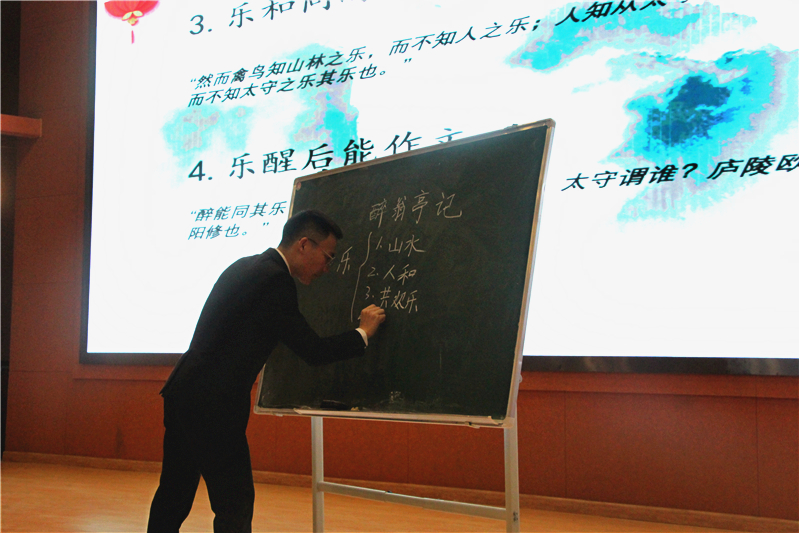 3. 乐和
“然而禽鸟知山林之乐，而不知人之乐；人知从太
而不知太守之乐其乐也。”
4. 乐醒后能作文
“醉能同其乐
太守谓谁？庐陵欧
阳修也。”
醉翁亭记
乐
1.山水
2.人和
3.共 乐